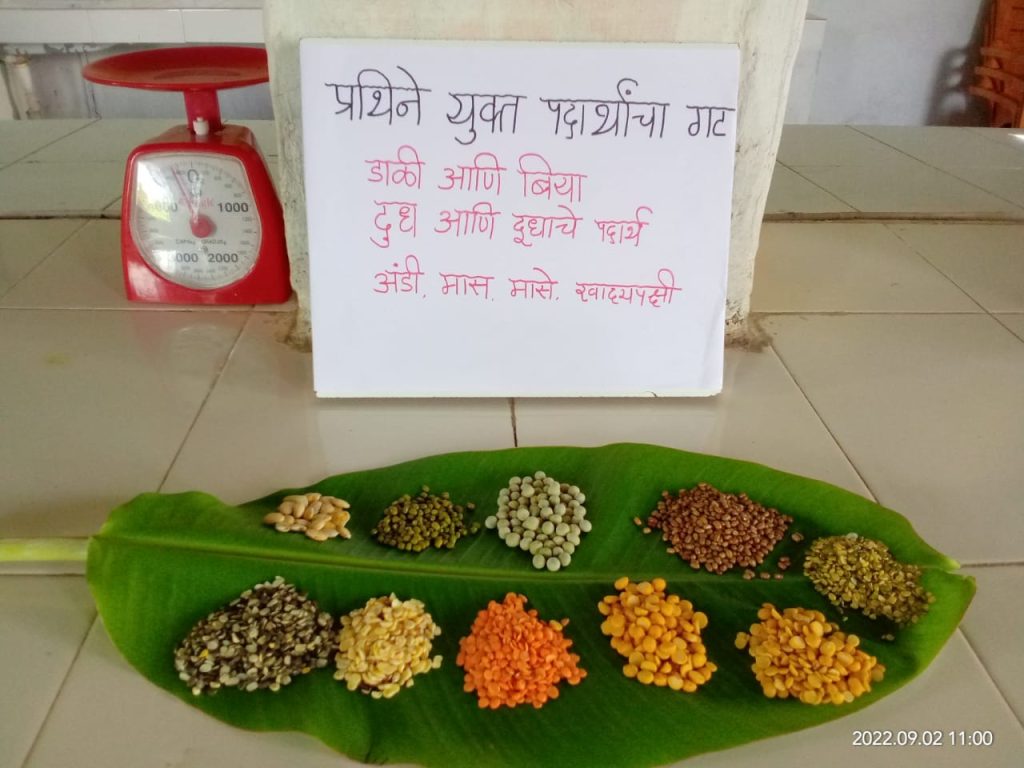 प्रथिने युक्त पदार्थांचा गट
डाळी आणि बिया
दुध आणि दूधाचे पदार्थ
अंडी, मास, मासे, खाद्यपक्षी
0
1000
3000 2000
2022.09.02 11:00